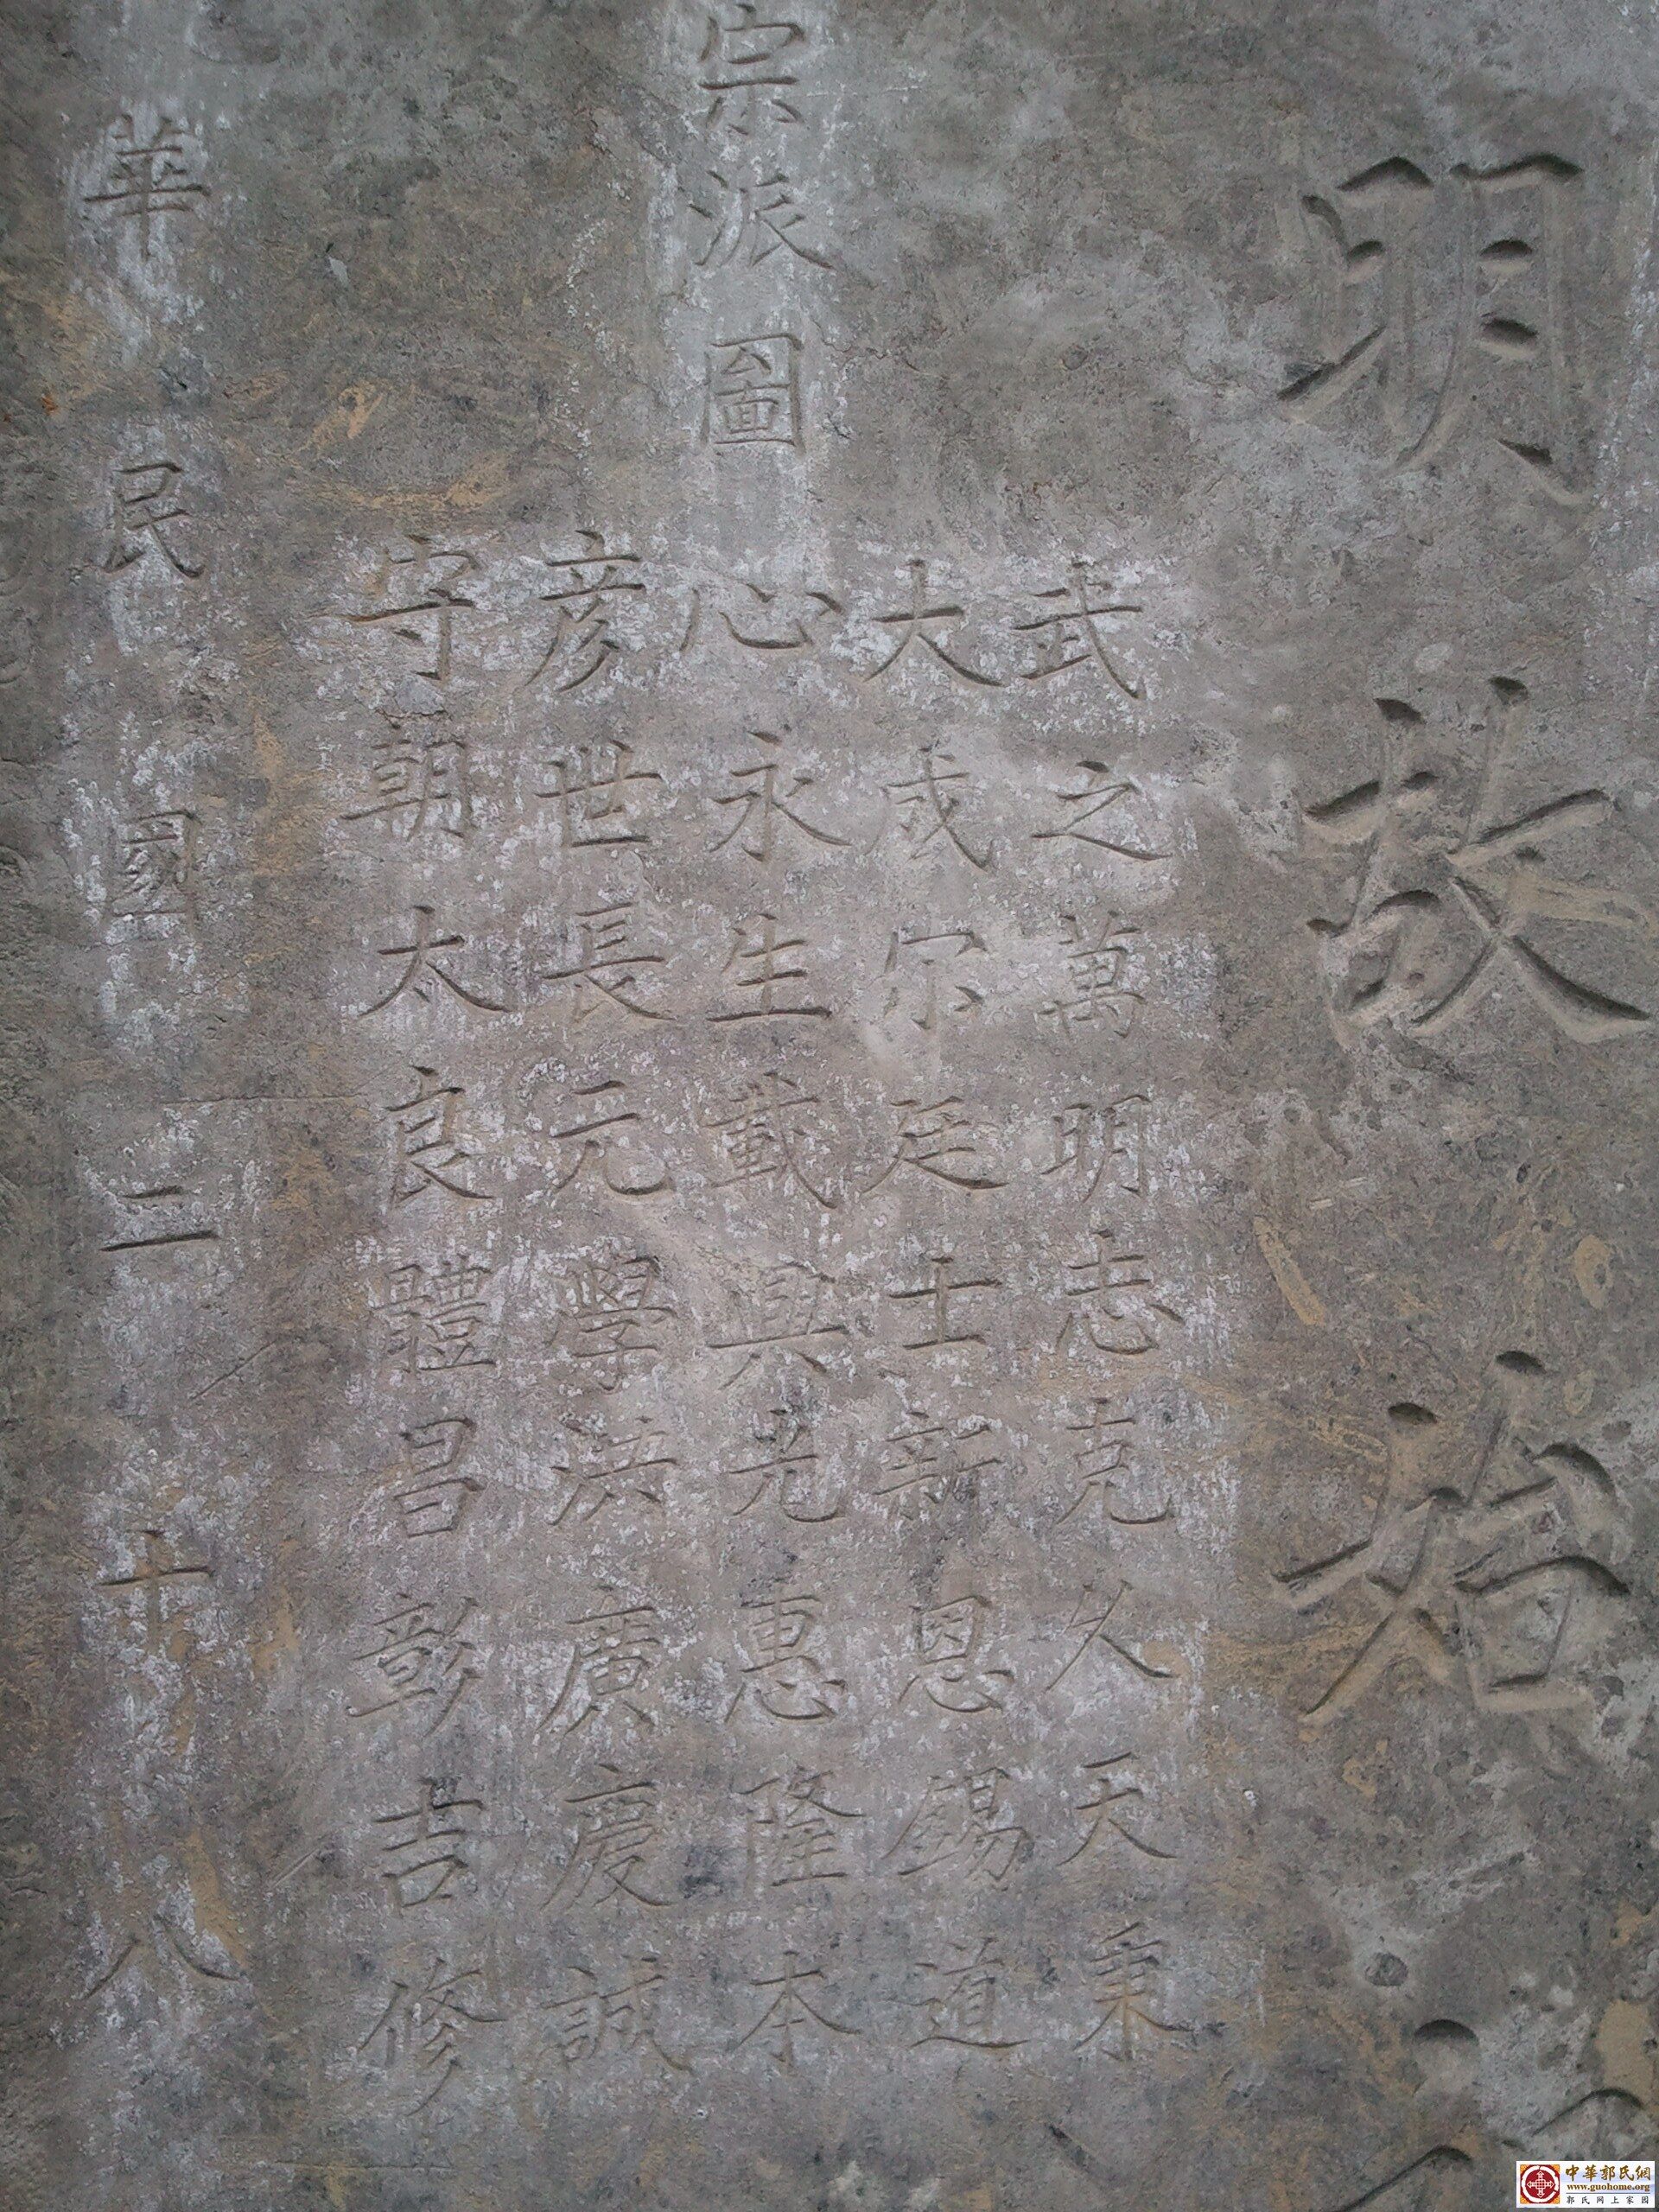 明故始
武之萬明志克久天秉
大成宗廷士新恩錫道
心永生戴興光惠隆本
彦世長元學洪廣慶誠
守朝太良體昌彰吉修
宗派圖
華民國二十八
中華郭氏網
www.guohome.org
郭氏网上家园